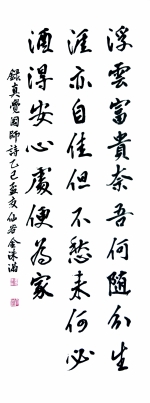 浮雲富貴奈吾何隨分生
涯亦自佳但不愁來何必
酒得安心處便為家
錄真覺國師詩乙巳孟亥仙谷金沫滿